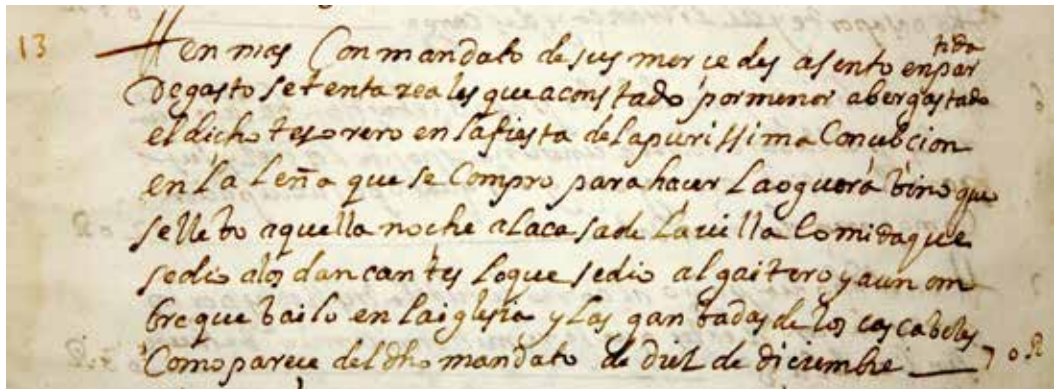 13 Iten mas Con mandato de sus merçedes asento en par tida
De gasto setenta reales que a constado por menor aber gastado
el dicho tesorero en la fiesta de la purissima Conçebcion
en la leña que se Compro para hacer la oguera bino que
se llebo aquella noche a la casa de la villa Comida que
se dio a los dancantes lo que se dio al gaitero y a un om
bre que bailo en la iglesia y las gan badas de los cascabeles
Como parece del dho mandato de diez de diciembre — 70 R